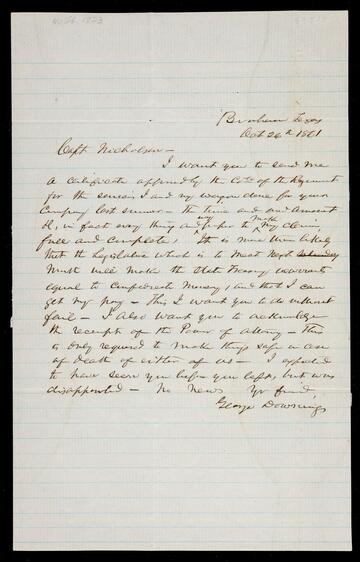 Brenham Texas
Oct 26th 1861
Capt Nicholson —
I want you to send me
a certificate approved by the Col. of the Regiment
for the services I and my wagon done for your
Company last summer — the time and amount
&c, in fact every thing necessary to make my claim
full and complete, It is more than likely
that the Legislature which is to meet next
Month will make the State Treasury warrants
equal to Confederate Money, and that I can
get my pay — This I want you to do without
fail — I also want you to acknowledge
the receipt of the Power of attorney — This
is only required to make things safe in case
of death of either of us — I expected
to have seen you before you left, but was
disappointed — No news Yr friend,
George Downings